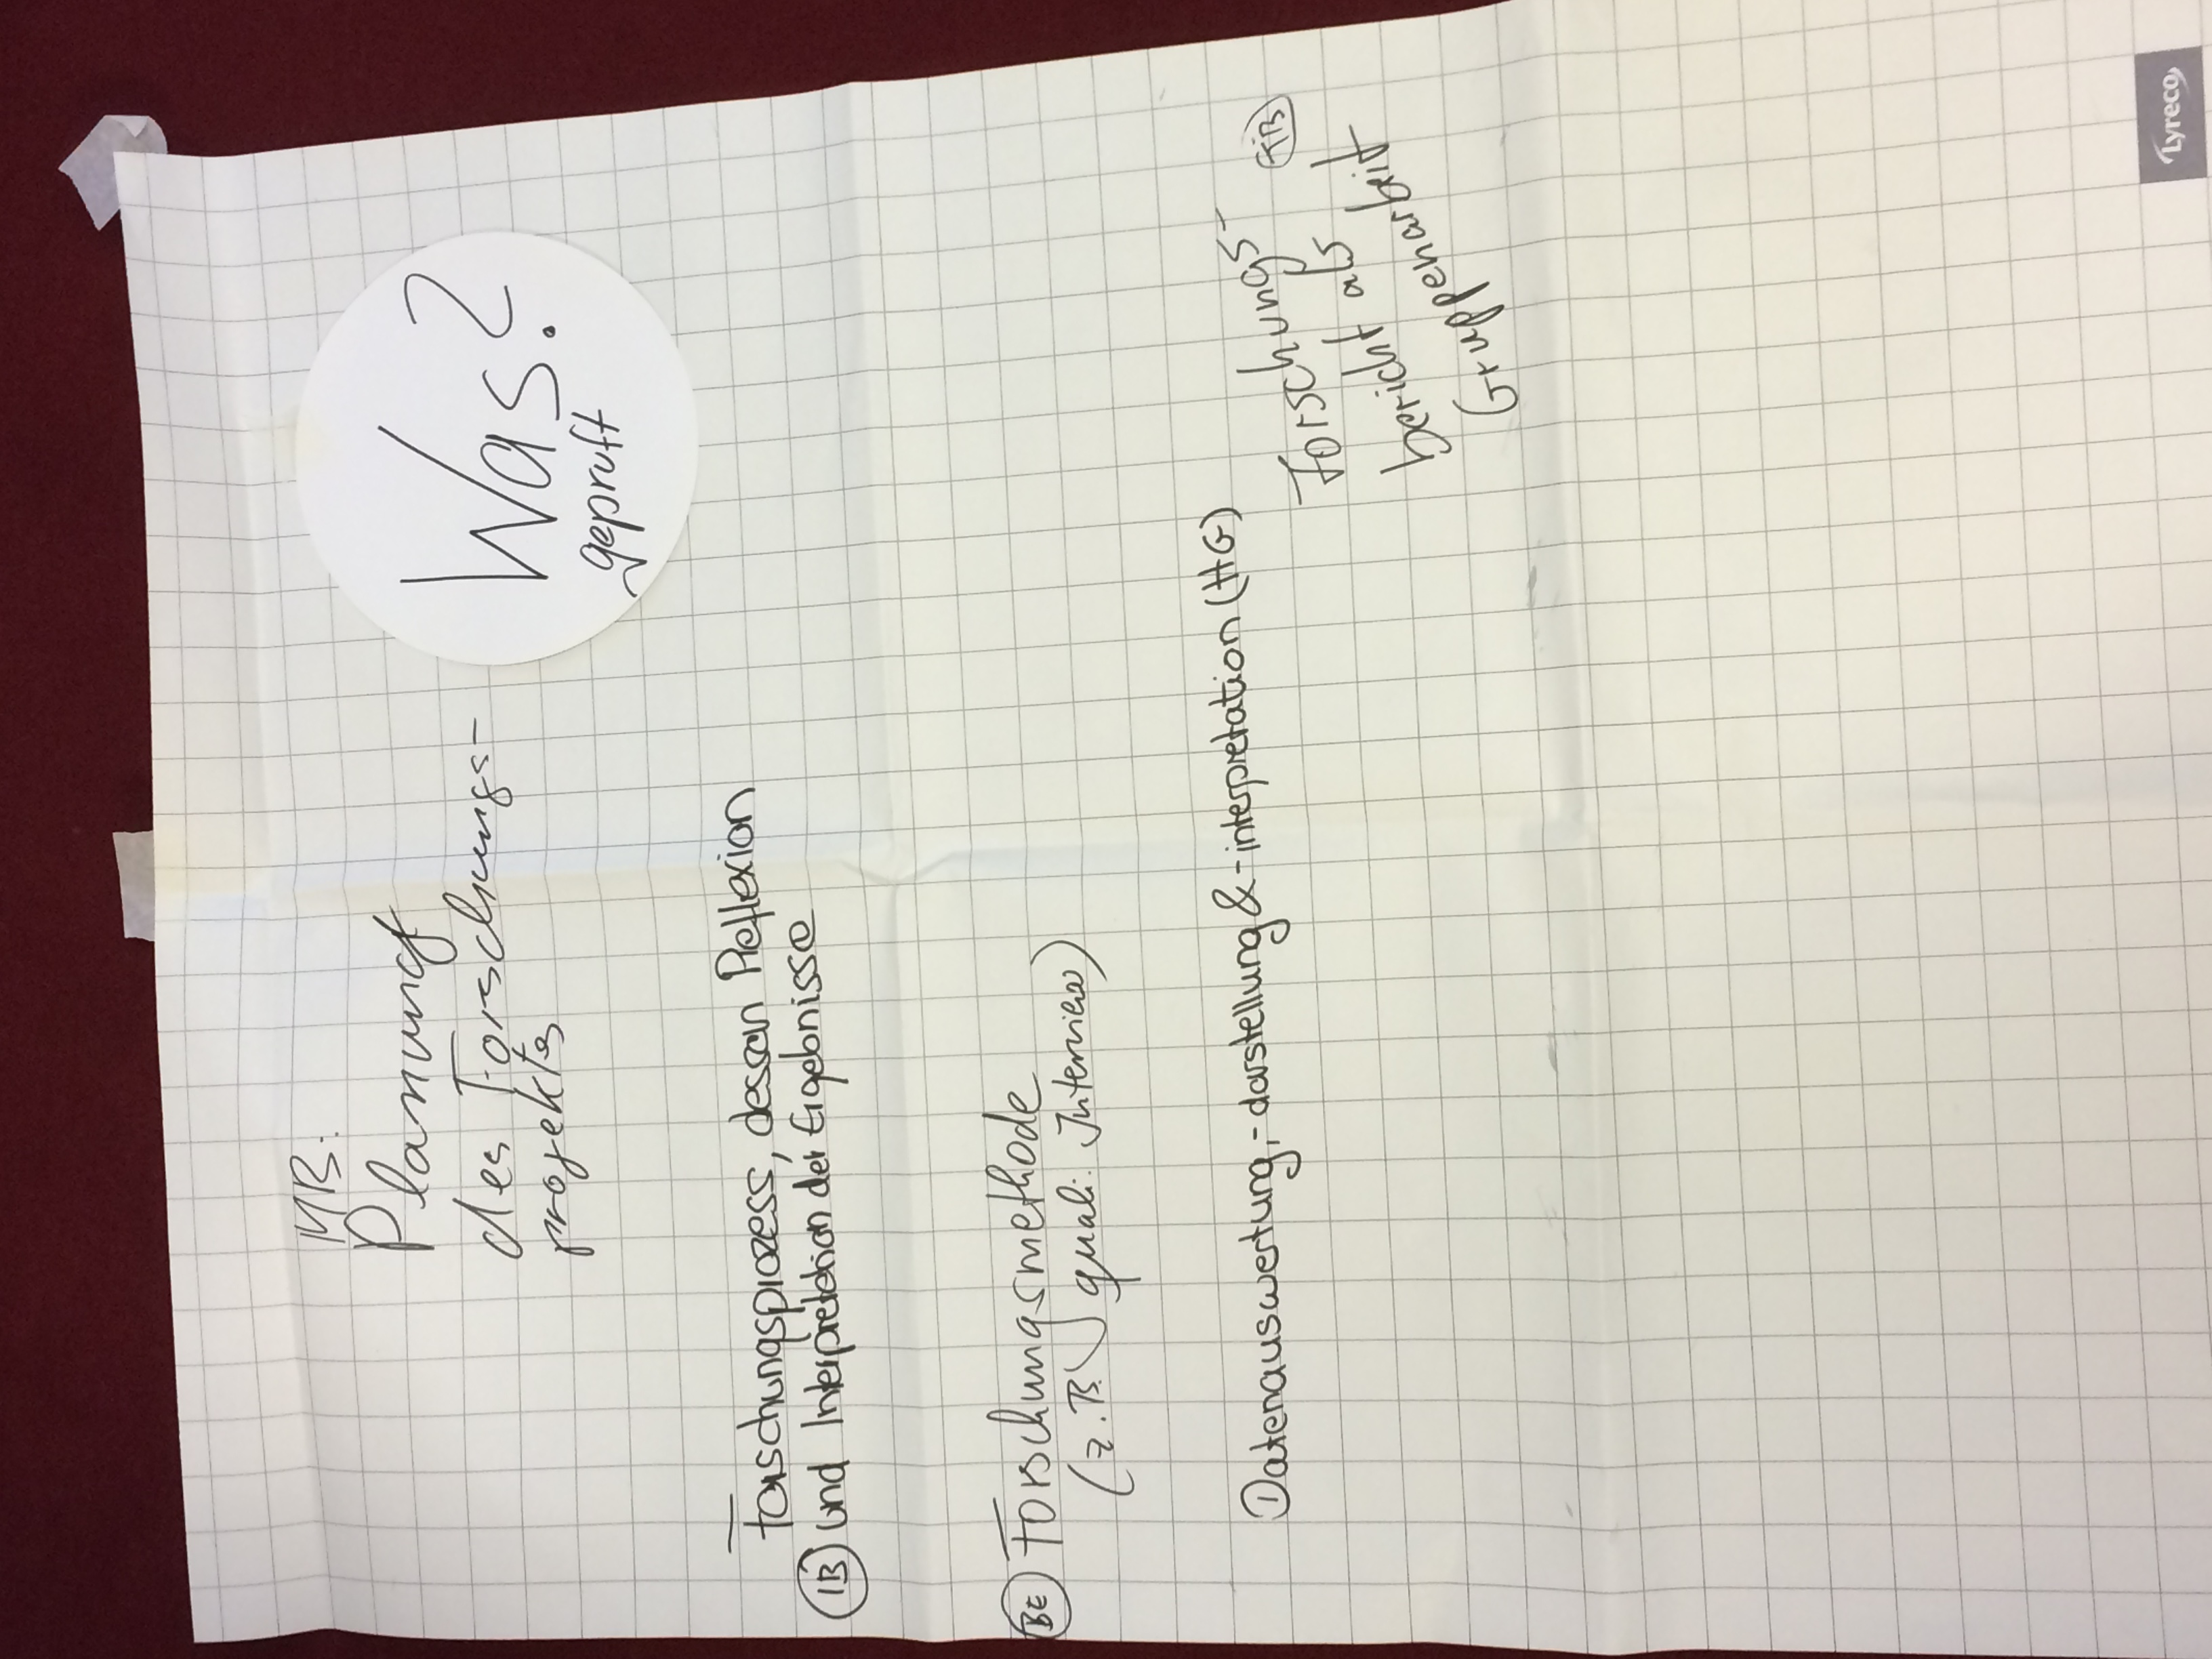 Was?
geprüft
MR:
Planung
des Forschungs-
projektes
Forschungsprozess, dessen Reflexion
IB und Interpretation der Ergebnisse
BE Forschungsmethode
(z.B. quali. Interview)
Datenauswertung, -darstellung & -interpretation (HG)
Forschungs-
bericht als
Gruppenarbeit
Lyreco